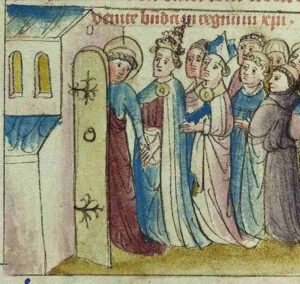 venite bndci in regnum xpi ·